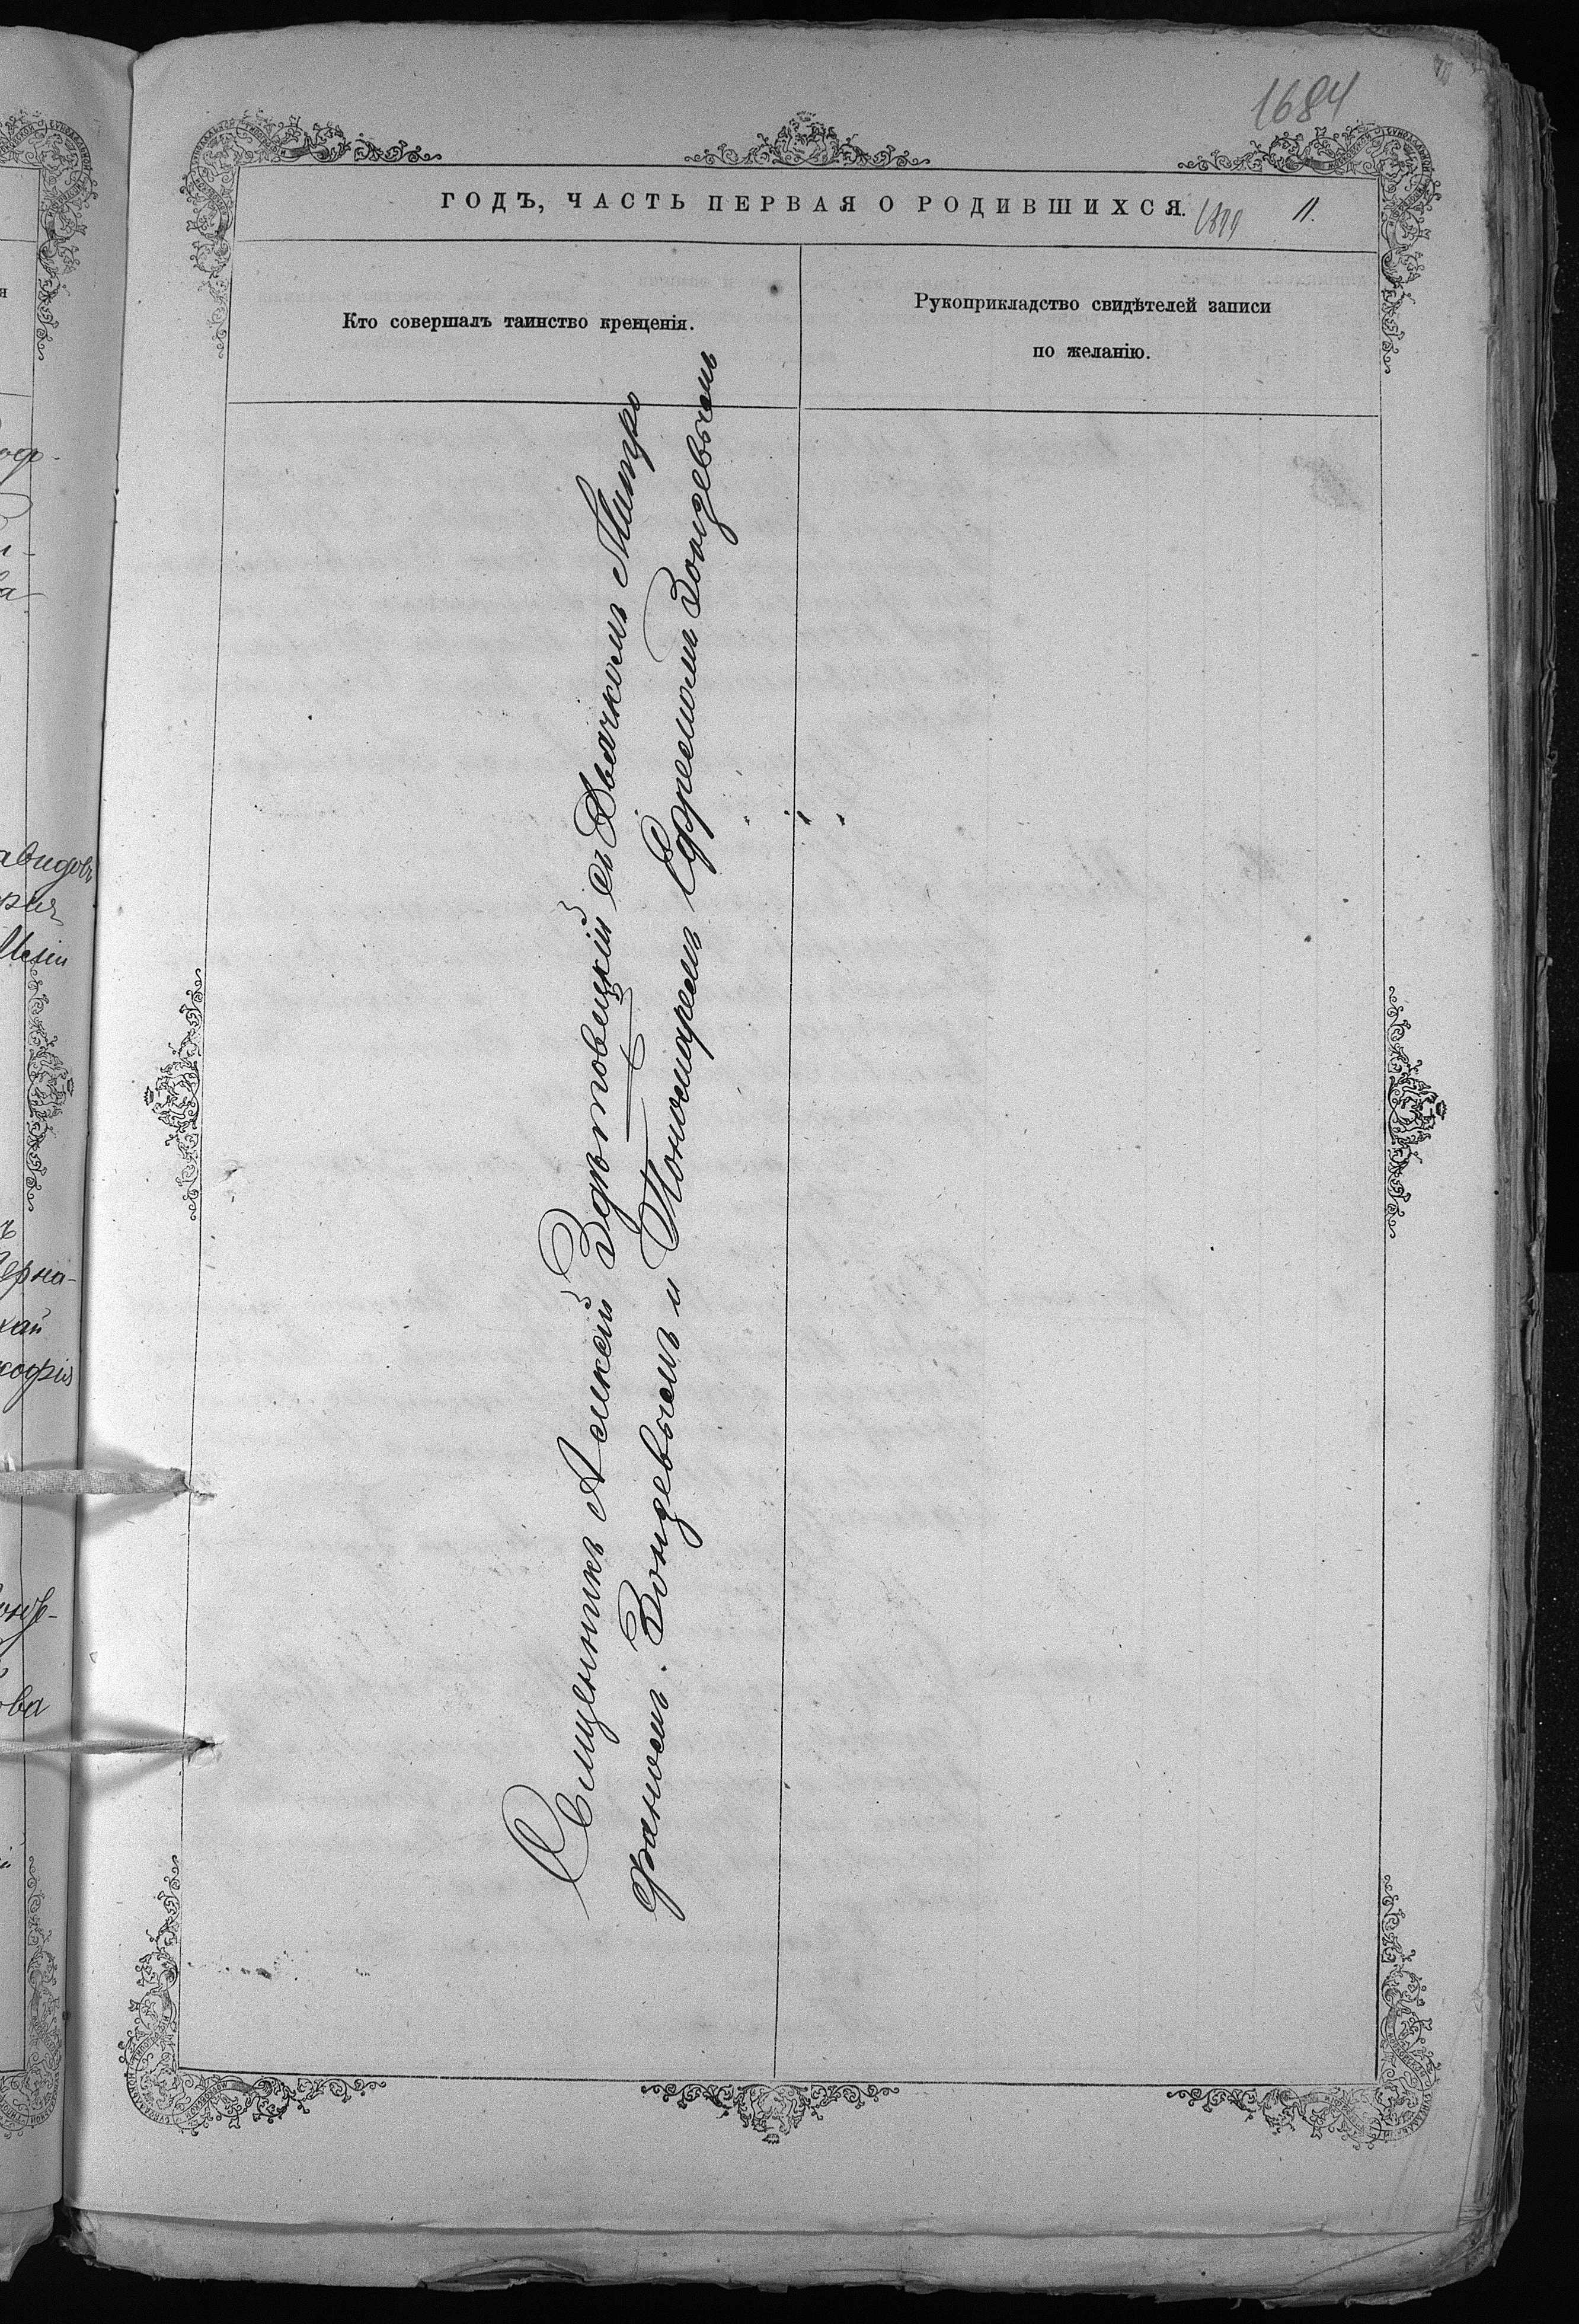 1684
ГОДЪ, ЧАСТЬ ПЕРВАЯ О РОДИВШИХСЯ.
11.
Кто совершалъ таинство крещенія.
Рукоприкладство свидѣтелей записи
по желанію.
Священникъ Алексій Здѣтовецкій съ Дьячкомъ Митро
фаномъ Вондевычемъ и Пономаремъ Ефремомъ Вондевычемъ